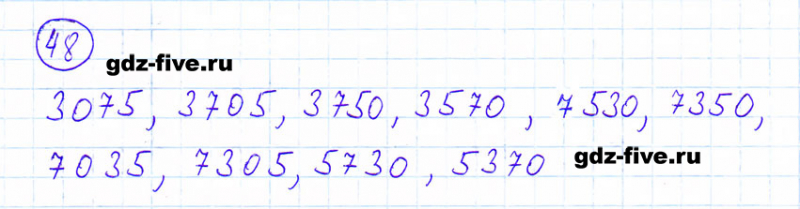 48
gdz-five.ru
3075, 3705, 3750, 3570, 7530, 7350,
7035, 7305, 5730, 5370 gdz-five.ru